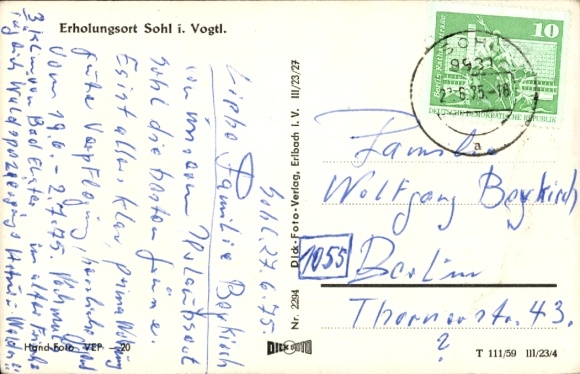 Erholungsort Sohl i. Vogtl.
Sohl, 27.6.75
Liebe Familie Beykirch
von unserem Urlaubsort
Sohl die besten Grüße.
Es ist alles klar, prima
gute Verpflegung, herrliche
vom 19.6. - 2.7.75
3 klm von Bad Elster, in alter Frische
täglich Waldspaziergänge
Hand-Foto VEP — 20
Nr. 2294 Dick-Foto-Verlag, Erlbach i. V. III/23/27
DICK FOTO
10
DEUTSCHE DEMOKRATISCHE REPUBLIK
SOHL
9931
-6.75-18
a
Familie
Wolfgang Beykirch
1055
Berlin
Thornerstr. 43.
?
T 111/59 III/23/4